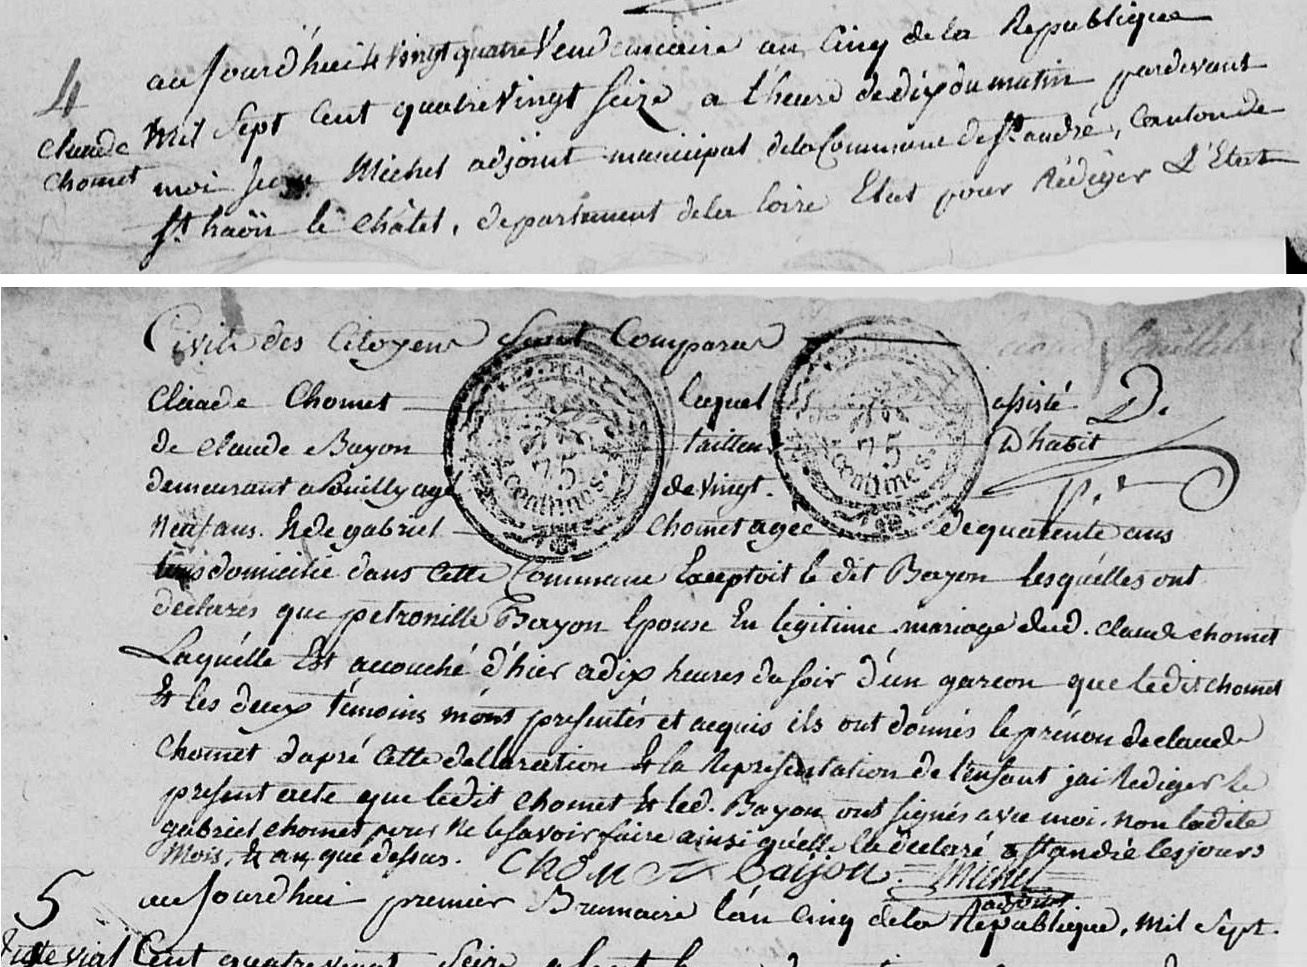 4
Claude
Chomet
aujourd'hui 4 vingt quatre Vendemiaire an Cinq de la Republique
Mil Sept Cent quatre Vingt Seize a l'heure de dix du matin pardevant
moi Jean Michel adjoint municipal de la Commune de St andré, Canton de
St haön le Châtel, departement de la loire Elut pour Rédiger L'Etat
Civile des Citoyens Sont Comparus
Claude Chomet lequel assisté
de Claude Bayon tailleur D'habit
demeurant a Pouilly agé de Vingt.
Neuf ans. & de gabriel Chomet agée de quarente ans
tous domicilie dans Cette Commune Exceptoit le dit Bayon lesquélles ont
declarés que petronille Bayon Epouse En legitime mariage dud. Claude Chomet
Laquélle Est accouché d'hier a dix heures du soir d'un garcon que le dit Chomet
Et les deux témoins m'ont présentés et acquis ils ont donnés le prénon de claude
Chomet d'apré Cette déllaration Et la Représentation de l'enfant j'ai Rediger le
présent acte que le dit Chomet Et led. Bayon ont signés avec moi. non ladite
gabriel Chomet pour ne le savoir faire ainsi qu'élle la déclaré a St andré les jours
Mois, & an, que dessus. Chomet Baijon Michel
adjoint
D.
75
centimes
75
centimes
5
aujourd'hui premier Brumaire l'an Cinq de la République, Mil Sept.
Cent quatre vingt Seize